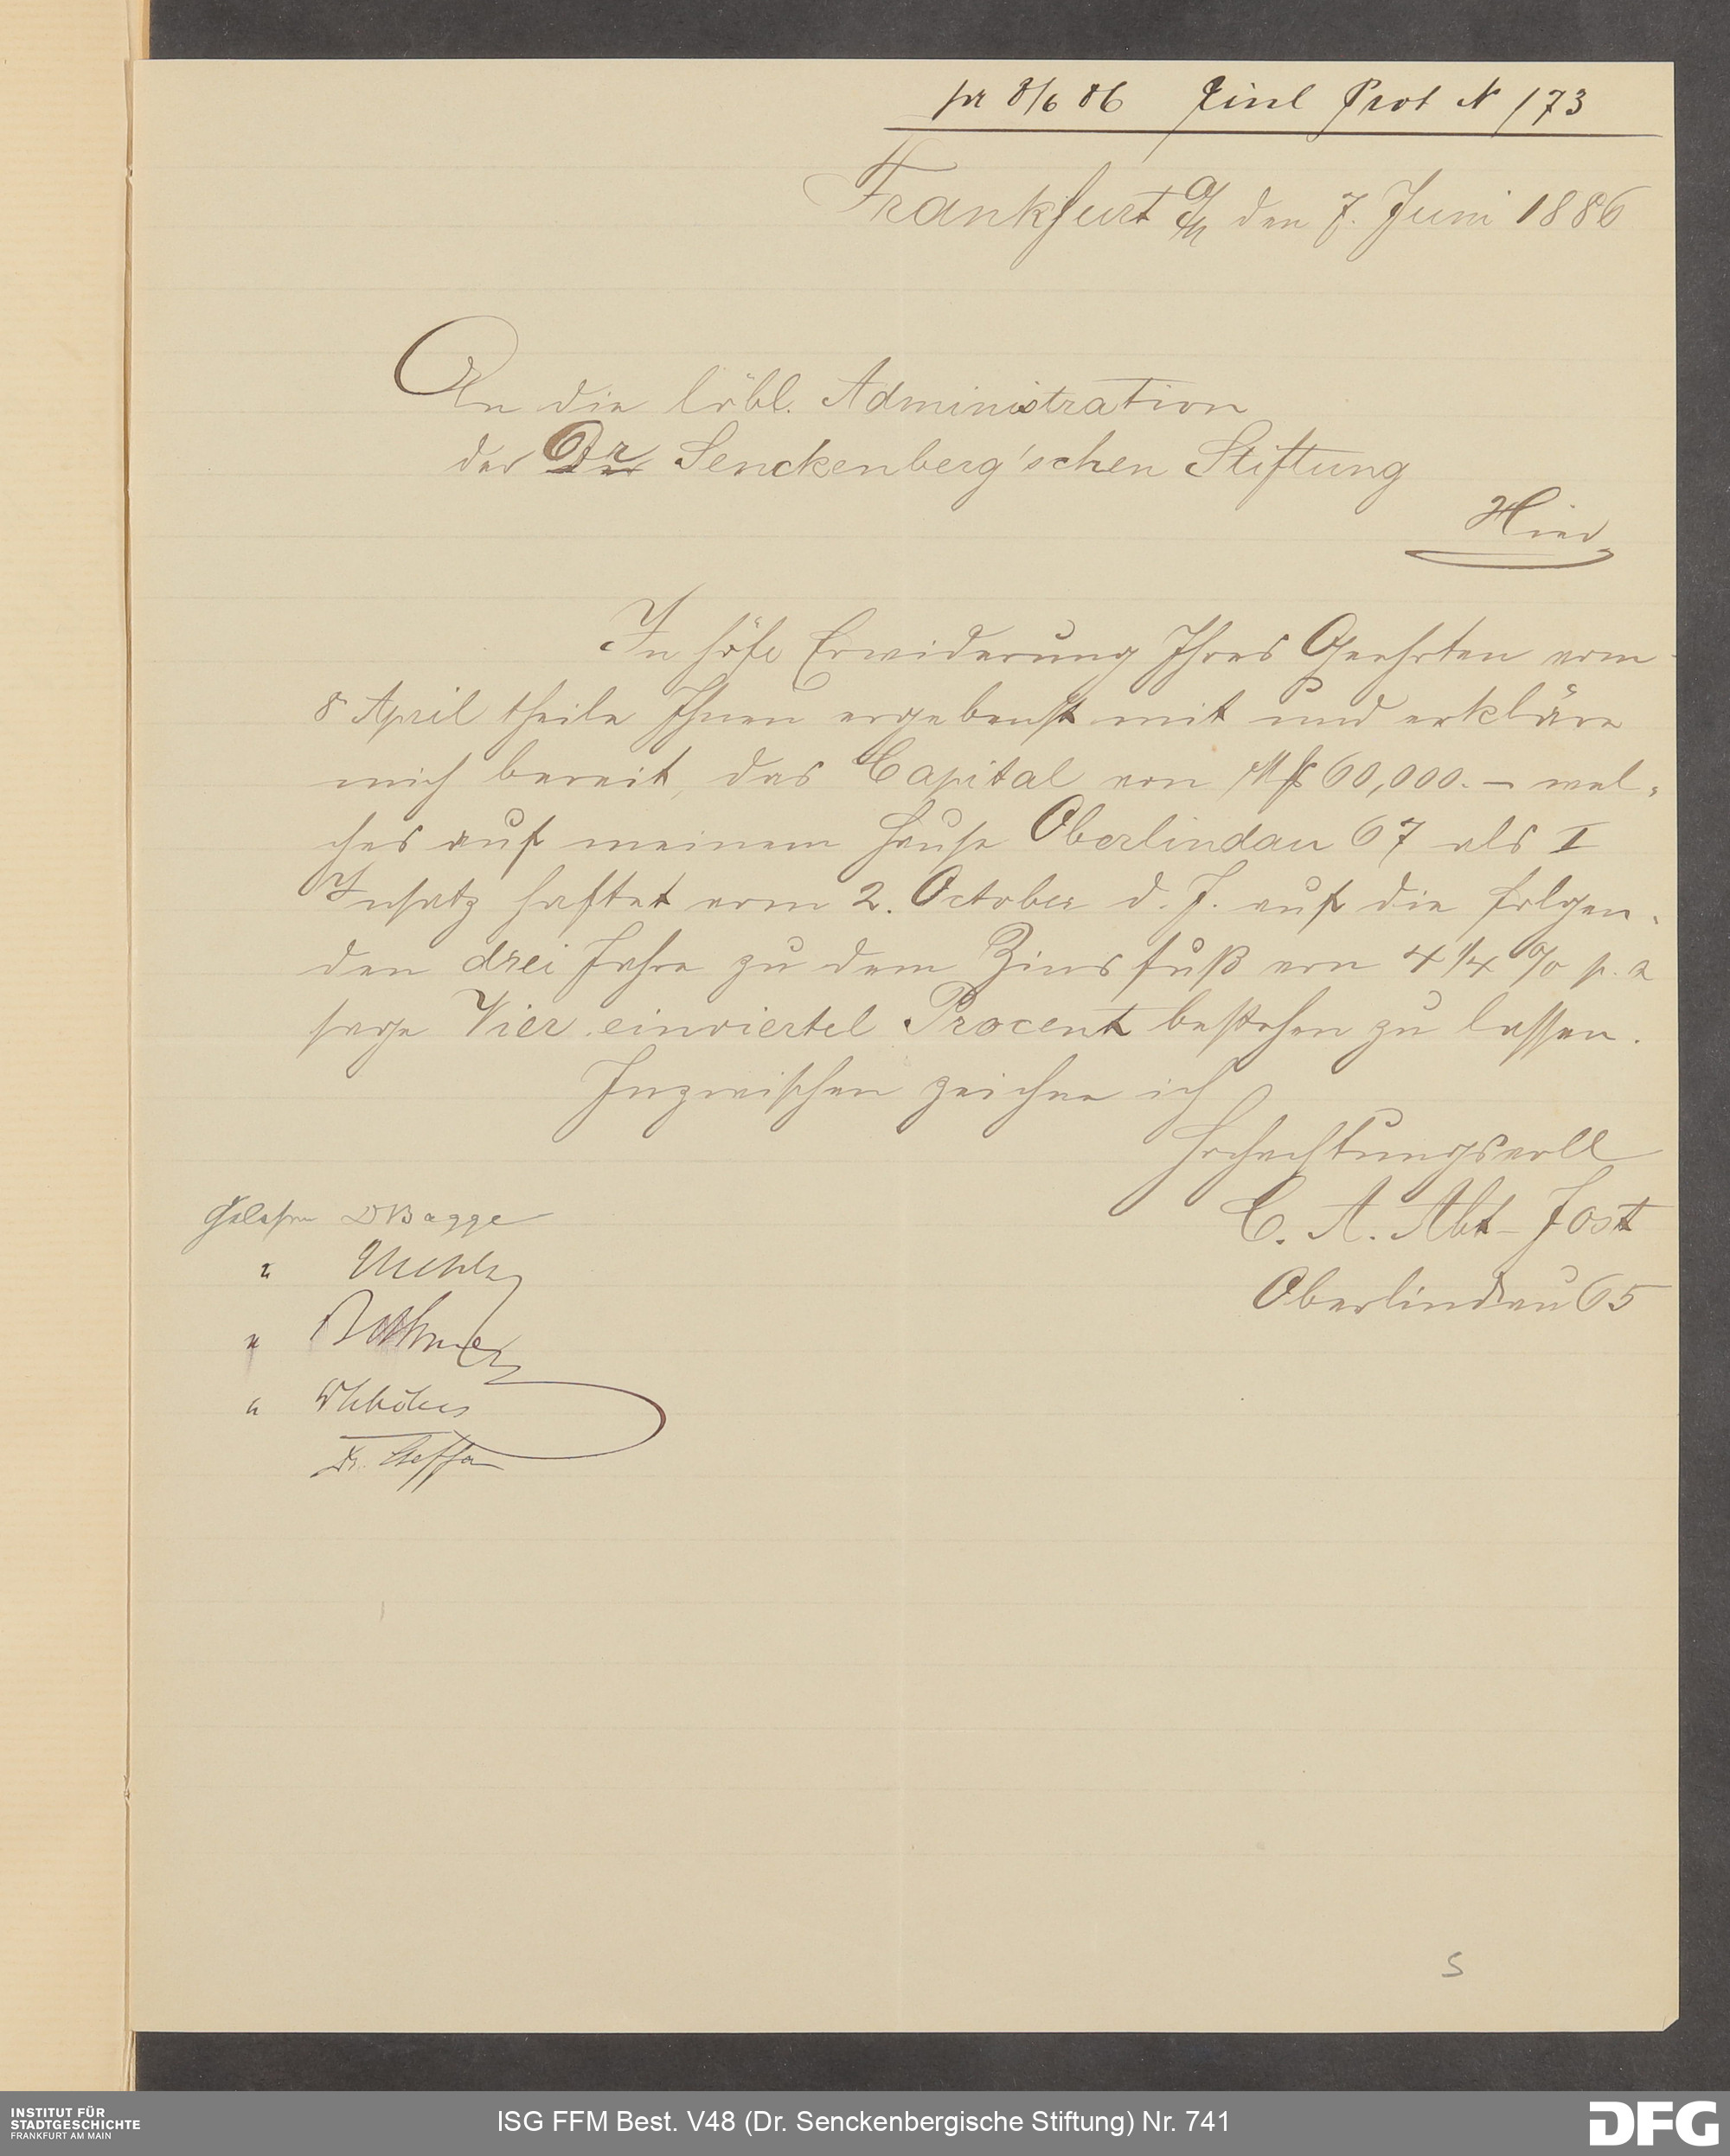 pr 8/6 86 Einl Prot N 173
Frankfurt a/M den 7. Juni 1886
An die löbl. Administration
der Dr Senckenberg'schen Stiftung
Hier
In höfl Erwiderung Ihres Geehrten vom
8 April theile Ihnen ergebenst mit und erkläre
mich bereit, das Capital von Mk 60,000.– wel-
ches auf meinem Hause Oberlindau 67 als I
Insatz haftet vom 2. October d. J. auf die folgen-
den drei Jahre zu dem Zinsfuß von 4 1/4 % p. a
sage Vier einviertel Procent bestehen zu lassen.
Inzwischen zeichne ich
Hochachtungsvoll
C. A. Abt-Jost
Oberlindau 65
Gelesen D Bagge
"
"
"
Dr. Steffan
5
INSTITUT FÜR
STADTGESCHICHTE
FRANKFURT AM MAIN
ISG FFM Best. V48 (Dr. Senckenbergische Stiftung) Nr. 741
DFG